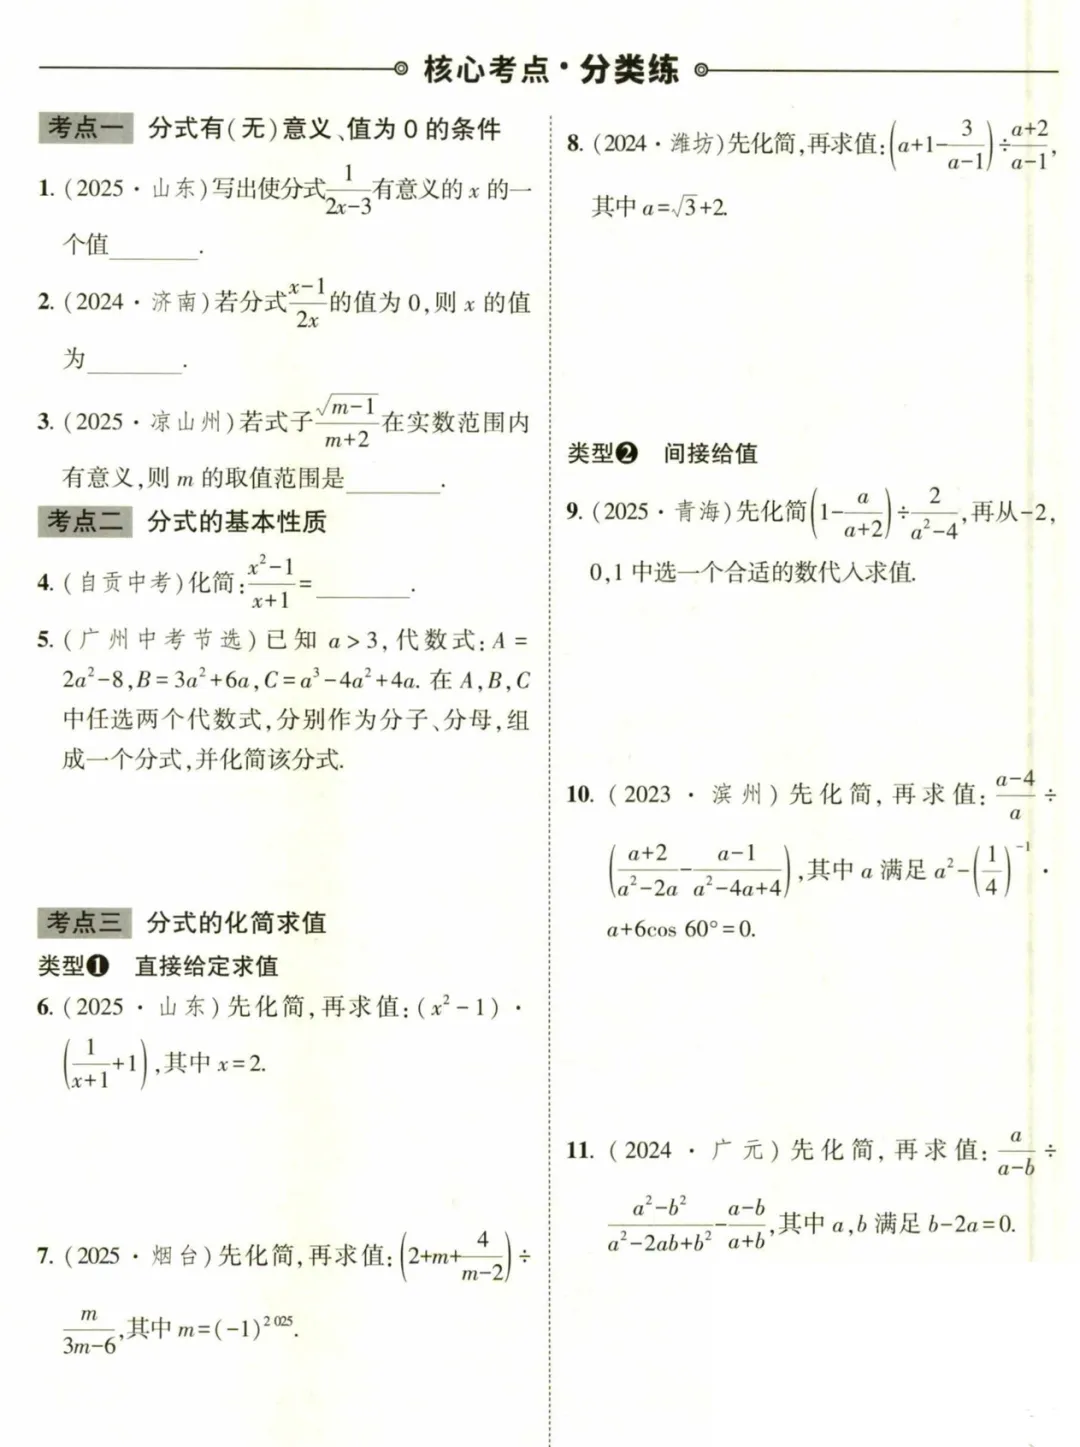 核心考点·分类练
考点一 分式有(无)意义、值为0的条件
1. (2025·山东)写出使分式\frac{1}{2x-3}有意义的x的一
个值________.
2. (2024·济南)若分式\frac{x-1}{2x}的值为0,则x的值
为________.
3. (2025·凉山州)若式子\frac{\sqrt{m-1}}{m+2}在实数范围内
有意义,则m的取值范围是________.
考点二 分式的基本性质
4. (自贡中考)化简:\frac{x^2-1}{x+1}=________.
5. (广州中考节选)已知a>3,代数式:A=
2a^2-8,B=3a^2+6a,C=a^3-4a^2+4a.在A,B,C
中任选两个代数式,分别作为分子、分母,组
成一个分式,并化简该分式.
考点三 分式的化简求值
类型❶ 直接给定求值
6. (2025·山东)先化简,再求值:(x^2-1)·
(\frac{1}{x+1}+1),其中x=2.
7. (2025·烟台)先化简,再求值:(2+m+\frac{4}{m-2})÷
\frac{m}{3m-6},其中m=(-1)^{2 025}.
8. (2024·潍坊)先化简,再求值:(a+1-\frac{3}{a-1})÷\frac{a+2}{a-1},
其中a=\sqrt{3}+2.
类型❷ 间接给值
9. (2025·青海)先化简(1-\frac{a}{a+2})÷\frac{2}{a^2-4},再从-2,
0,1中选一个合适的数代入求值.
10. (2023·滨州)先化简,再求值:\frac{a-4}{a}÷
(\frac{a+2}{a^2-2a}-\frac{a-1}{a^2-4a+4}),其中a满足a^2-(\frac{1}{4})^{-1}·
a+6cos 60°=0.
11. (2024·广元)先化简,再求值:\frac{a}{a-b}÷
\frac{a^2-b^2}{a^2-2ab+b^2}-\frac{a-b}{a+b},其中a,b满足b-2a=0.